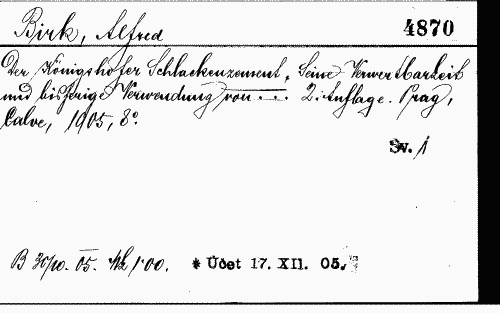 Birk, Alfred
4870
Der Königshofer Schlackenzement, Seine Verwertbarkeit
und bisherige Verwendung von ... 2. Auflage. Prag,
Calve, 1905, 8°.
Sv. 1
B 30/10. 05. Mk 1·00. * Účet 17. XII. 05.